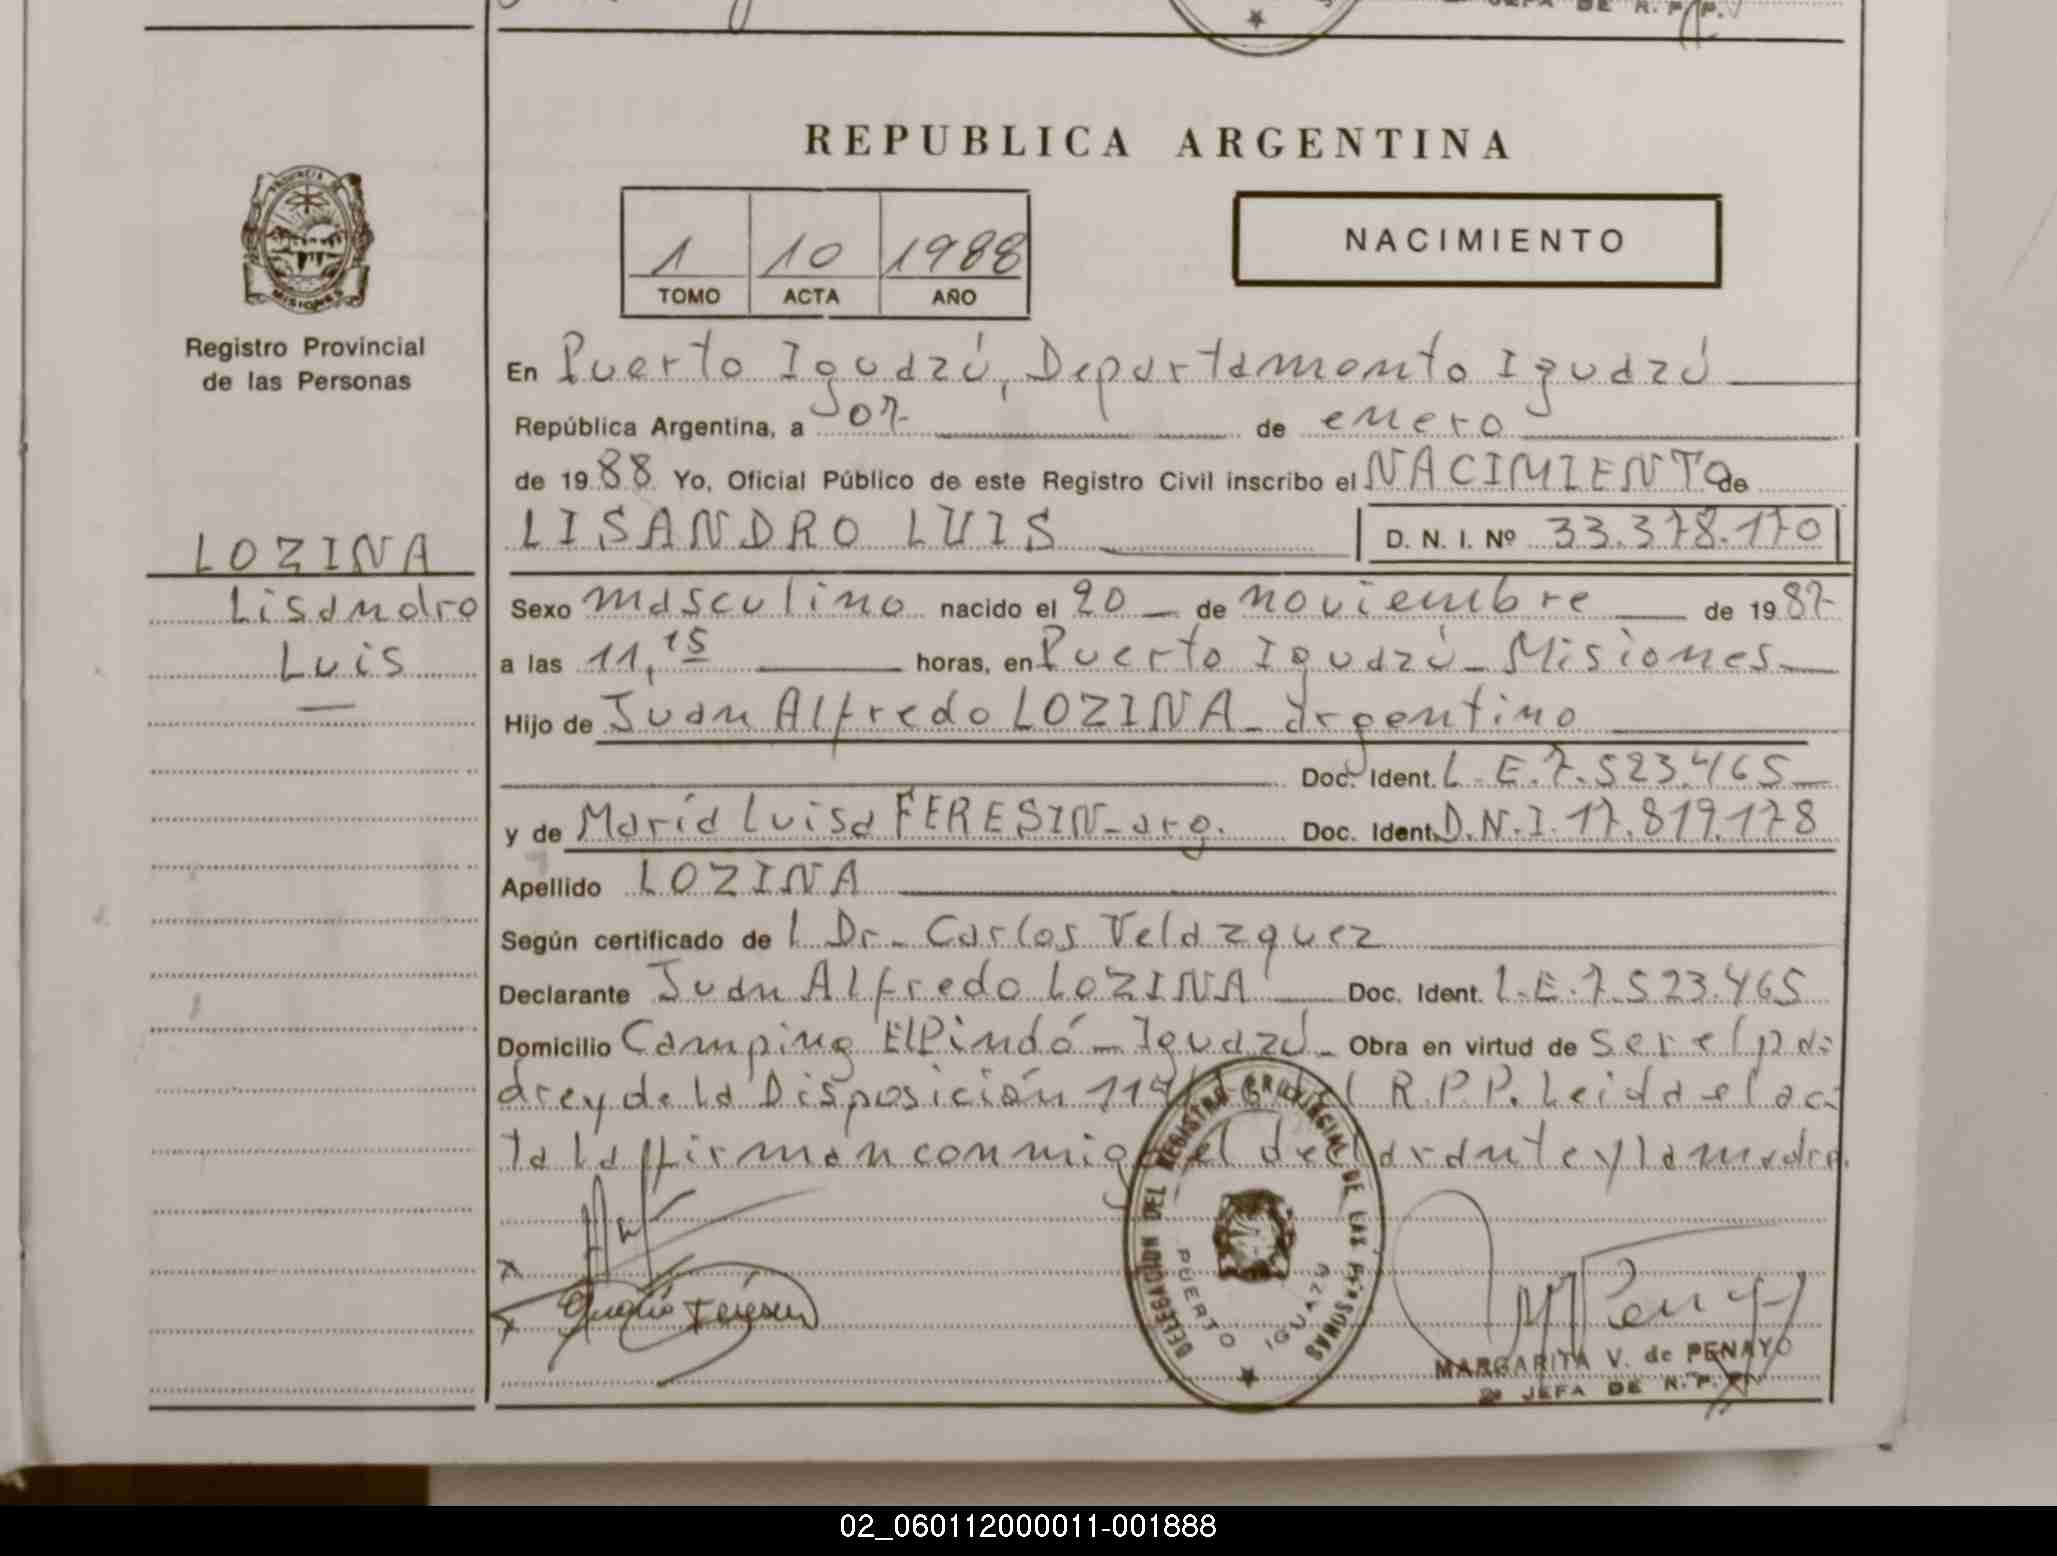 JEFA DE R. P. P.
REPUBLICA ARGENTINA
1 10 1988
TOMO ACTA AÑO
NACIMIENTO
PROVINCIA DE
MISIONES
Registro Provincial
de las Personas
LOZINA
Lisandro
Luis
En Puerto Iguazú, Departamento Iguazú
República Argentina, a 07 de enero
de 1988 Yo, Oficial Público de este Registro Civil inscribo el NACIMIENTO de
LISANDRO LUIS D. N. I. Nº 33.378.170
Sexo masculino nacido el 20 de noviembre de 1987
a las 11,15 horas, en Puerto Iguazú - Misiones
Hijo de Juan Alfredo LOZINA - argentino
Doc. Ident. L.E.7.523.465
y de María Luisa FERESIN - arg. Doc. Ident. D.N.I. 17.819.178
Apellido LOZINA
Según certificado de l Dr. Carlos Velazquez
Declarante Juan Alfredo LOZINA Doc. Ident. L.E.7.523.465
Domicilio Camping El Pindó - Iguazú - Obra en virtud de ser el pa-
dre y de la Disposición R.P.P. Leida el ac-
ta la firman conmigo el declarante y la madre.
DELEGACION DEL REGISTRO PROVINCIAL DE LAS PERSONAS
PUERTO IGUAZU
MARGARITA V. de PENAYO
2ª JEFA DE R. P. P.
02_060112000011-001888